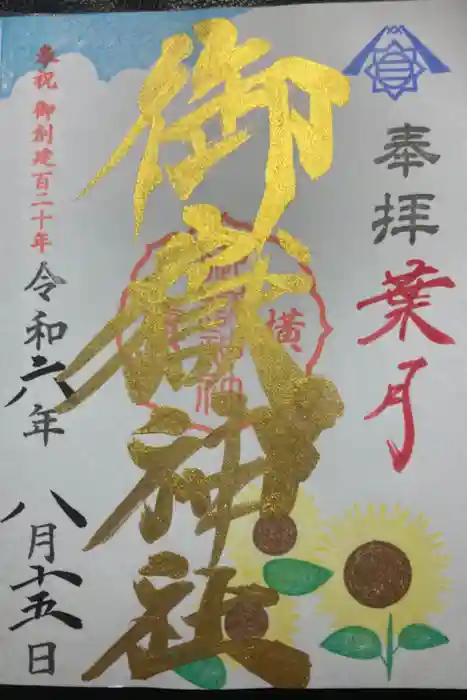 奉拝
葉月
御嶽神社
横
奉祝 御創建百二十年
令和六年 八月十五日